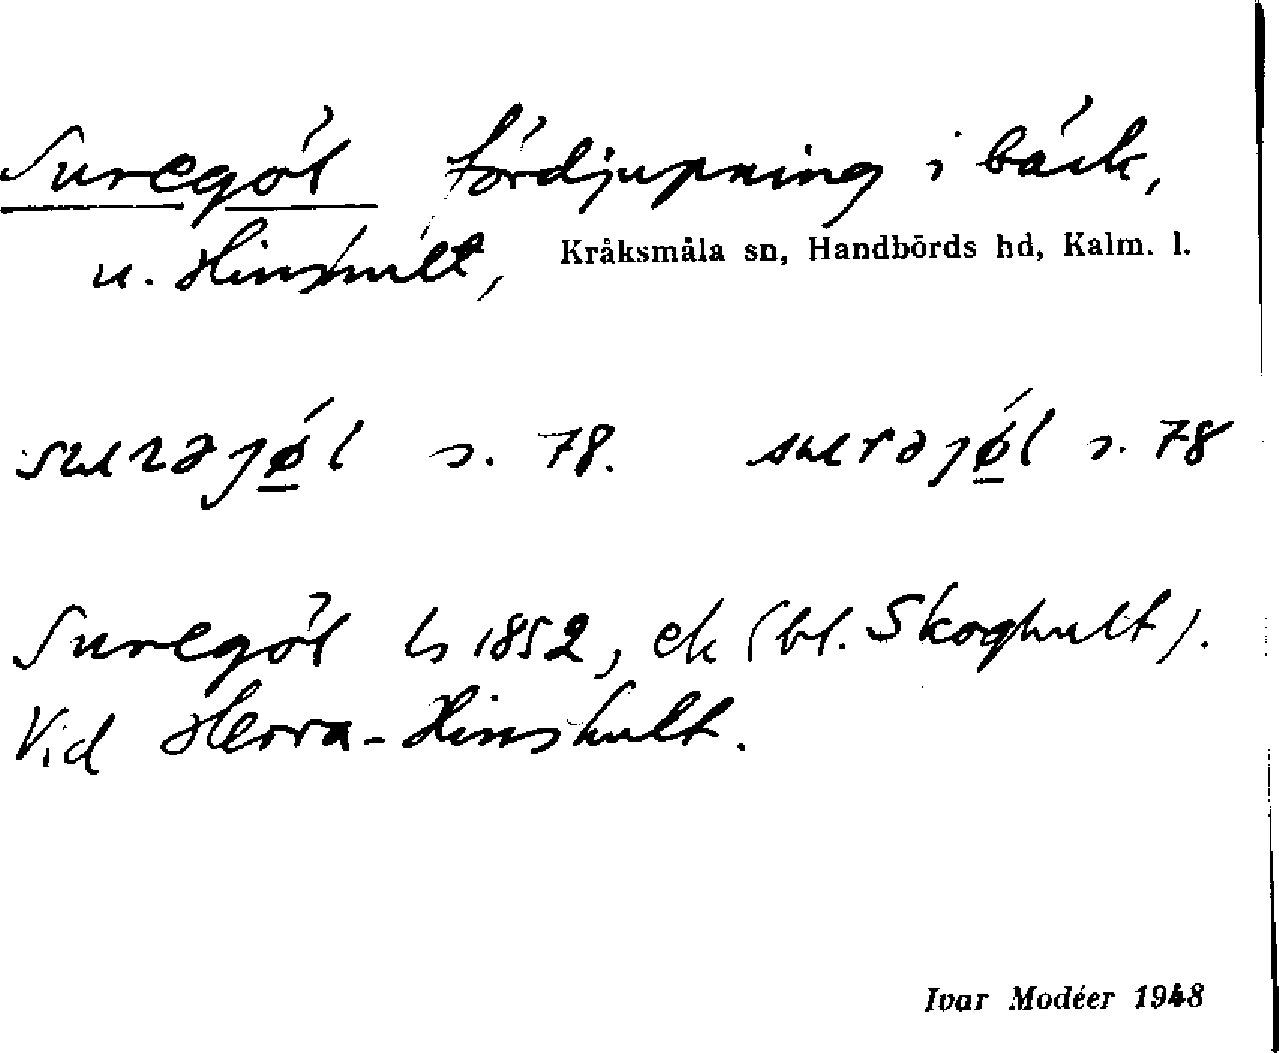 Suregöl fördjupning i bäck,
u. Hinshult, Kråksmåla sn, Handbörds hd, Kalm. l.
s. 78. s. 78
Suregöl ls 1852, ek (bl. Skoghult).
Vid Herra-Hinshult.
Ivar Modéer 1948